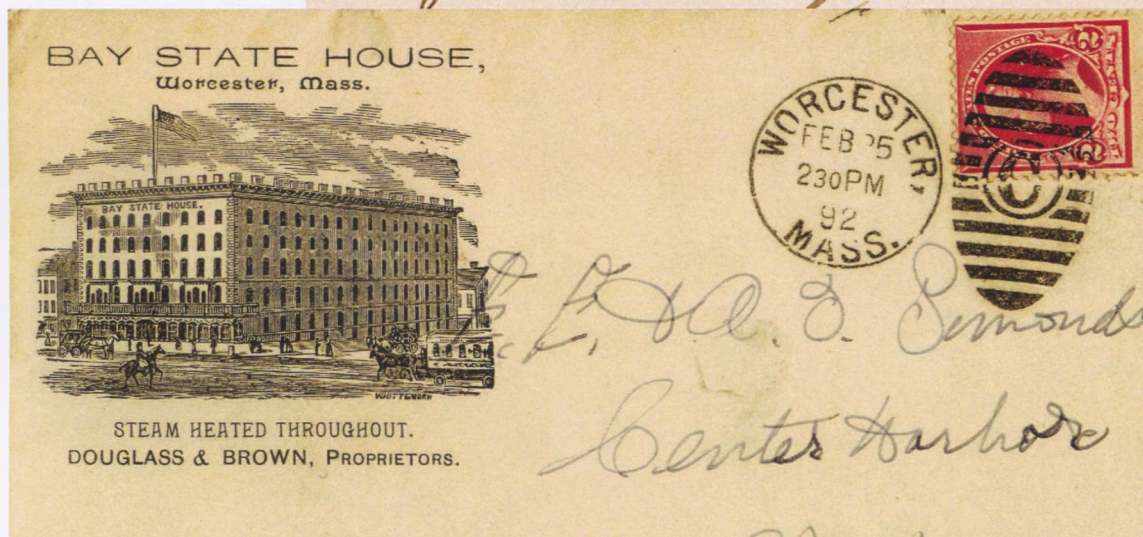 BAY STATE HOUSE,
Worcester, Mass.
BAY STATE HOUSE.
STEAM HEATED THROUGHOUT.
DOUGLASS & BROWN, PROPRIETORS.
WORCESTER,
FEB 25
230PM
92
MASS.
C
& A. E. Simonds
Center Harbor